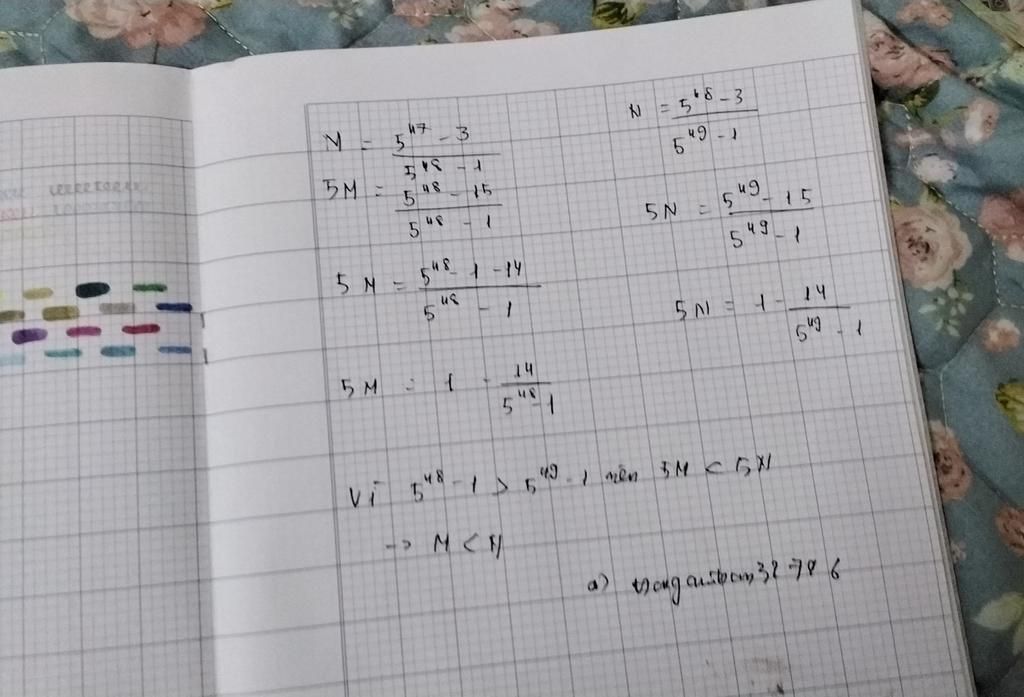 M = (5^47 - 3)/(5^48 - 1)
5M = (5^48 - 15)/(5^48 - 1)
5M = (5^48 - 1 - 14)/(5^48 - 1)
5M = 1 - 14/(5^48 - 1)
N = (5^48 - 3)/(5^49 - 1)
5N = (5^49 - 15)/(5^49 - 1)
5N = 1 - 14/(5^49 - 1)
Vì 5^48 - 1 > 5^49 - 1 nên 5M < 5N
-> M < N
a)